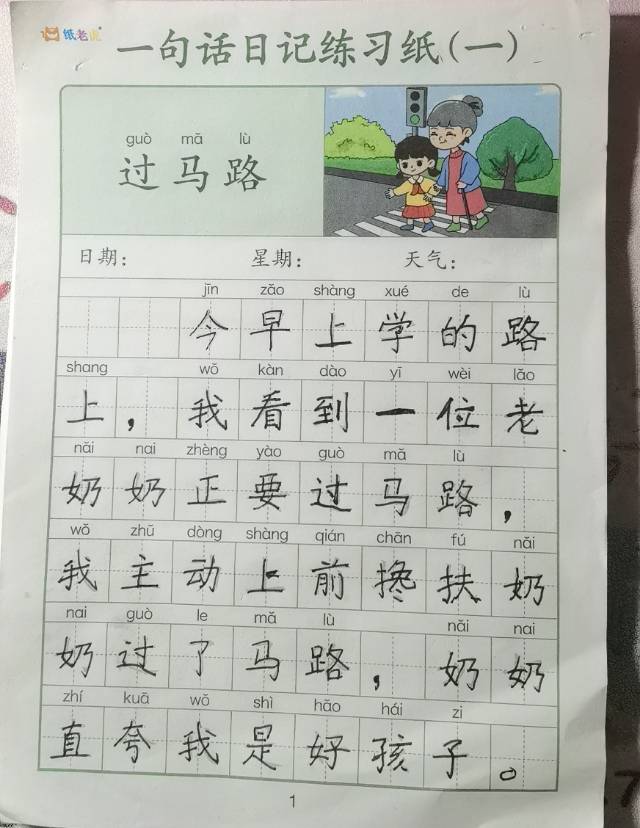 纸老虎
一句话日记练习纸(一)
guò mǎ lù
过马路
日期: 星期: 天气:
jīn zǎo shàng xué de lù
今早上学的路
shang wǒ kàn dào yī wèi lǎo
上,我看到一位老
nǎi nai zhèng yào guò mǎ lù
奶奶正要过马路,
wǒ zhǔ dòng shàng qián chān fú nǎi
我主动上前搀扶奶
nai guò le mǎ lù nǎi nai
奶过了马路,奶奶
zhí kuā wǒ shì hǎo hái zi
直夸我是好孩子。
1